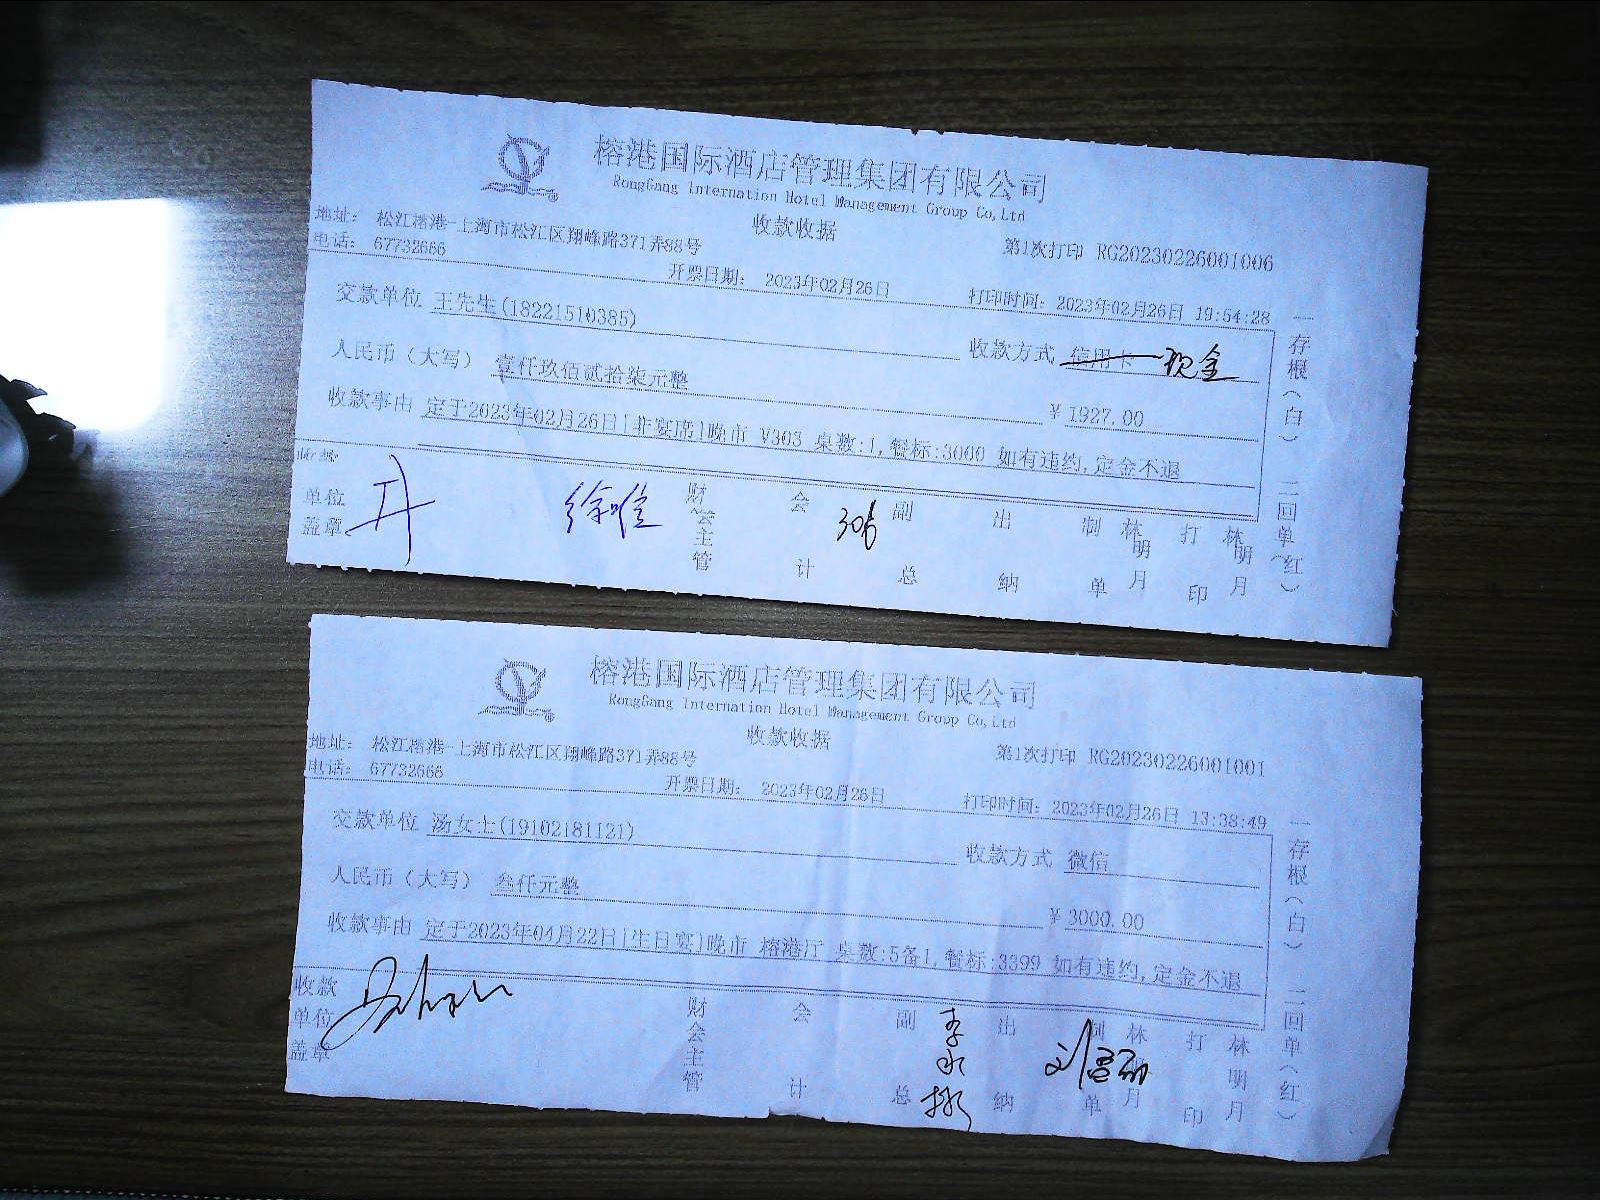 榕港国际酒店管理集团有限公司
RongGang Internation Hotel Management Group Co,Ltd
收款收据
地址： 松江榕港-上海市松江区翔峰路371弄88号
第1次打印 RG20230226001006
电话： 67732666
开票日期： 2023年02月26日
打印时间： 2023年02月26日 19:54:28
交款单位 王先生(18221510385)
收款方式 信用卡 现金
人民币（大写） 壹仟玖佰贰拾柒元整
￥1927.00
收款事由 定于2023年02月26日[非宴席]晚市 V303 桌数:1,餐标:3000 如有违约,定金不退
收款单位盖章
徐唯
财会主管 会计 副总 出纳 制单 林明月 打印 林明月
一存根（白） 二回单（红）
榕港国际酒店管理集团有限公司
RongGang Internation Hotel Management Group Co,Ltd
收款收据
地址： 松江榕港-上海市松江区翔峰路371弄88号
第1次打印 RG20230226001001
电话： 67732666
开票日期： 2023年02月26日
打印时间： 2023年02月26日 13:38:49
交款单位 汤女士(19102181121)
收款方式 微信
人民币（大写） 叁仟元整
￥3000.00
收款事由 定于2023年04月22日[生日宴]晚市 榕港厅 桌数:5备1,餐标:3399 如有违约,定金不退
收款单位盖章
财会主管 会计 副总 出纳 制单 林明月 打印 林明月
一存根（白） 二回单（红）